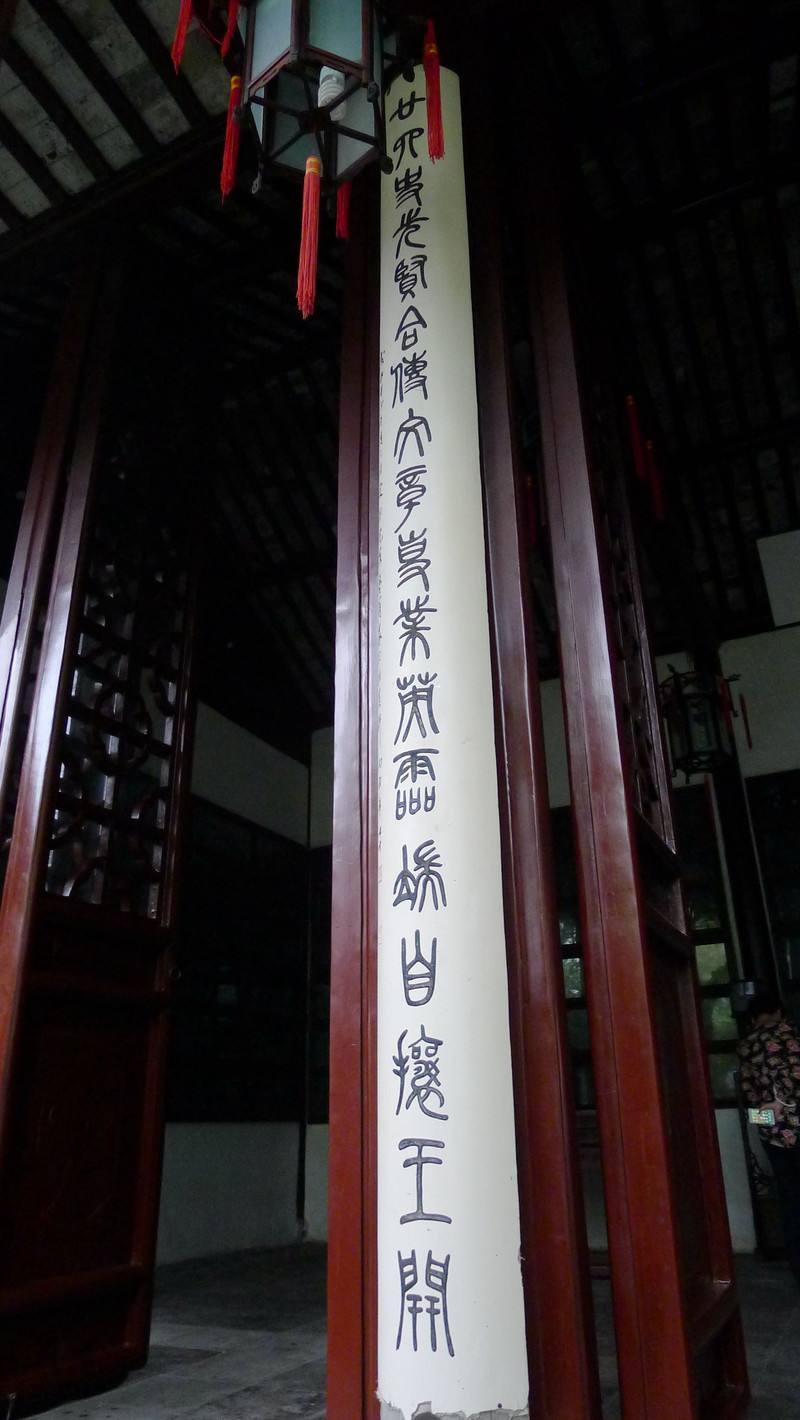 廿四史先賢合傳文章事業英靈端自攘王開